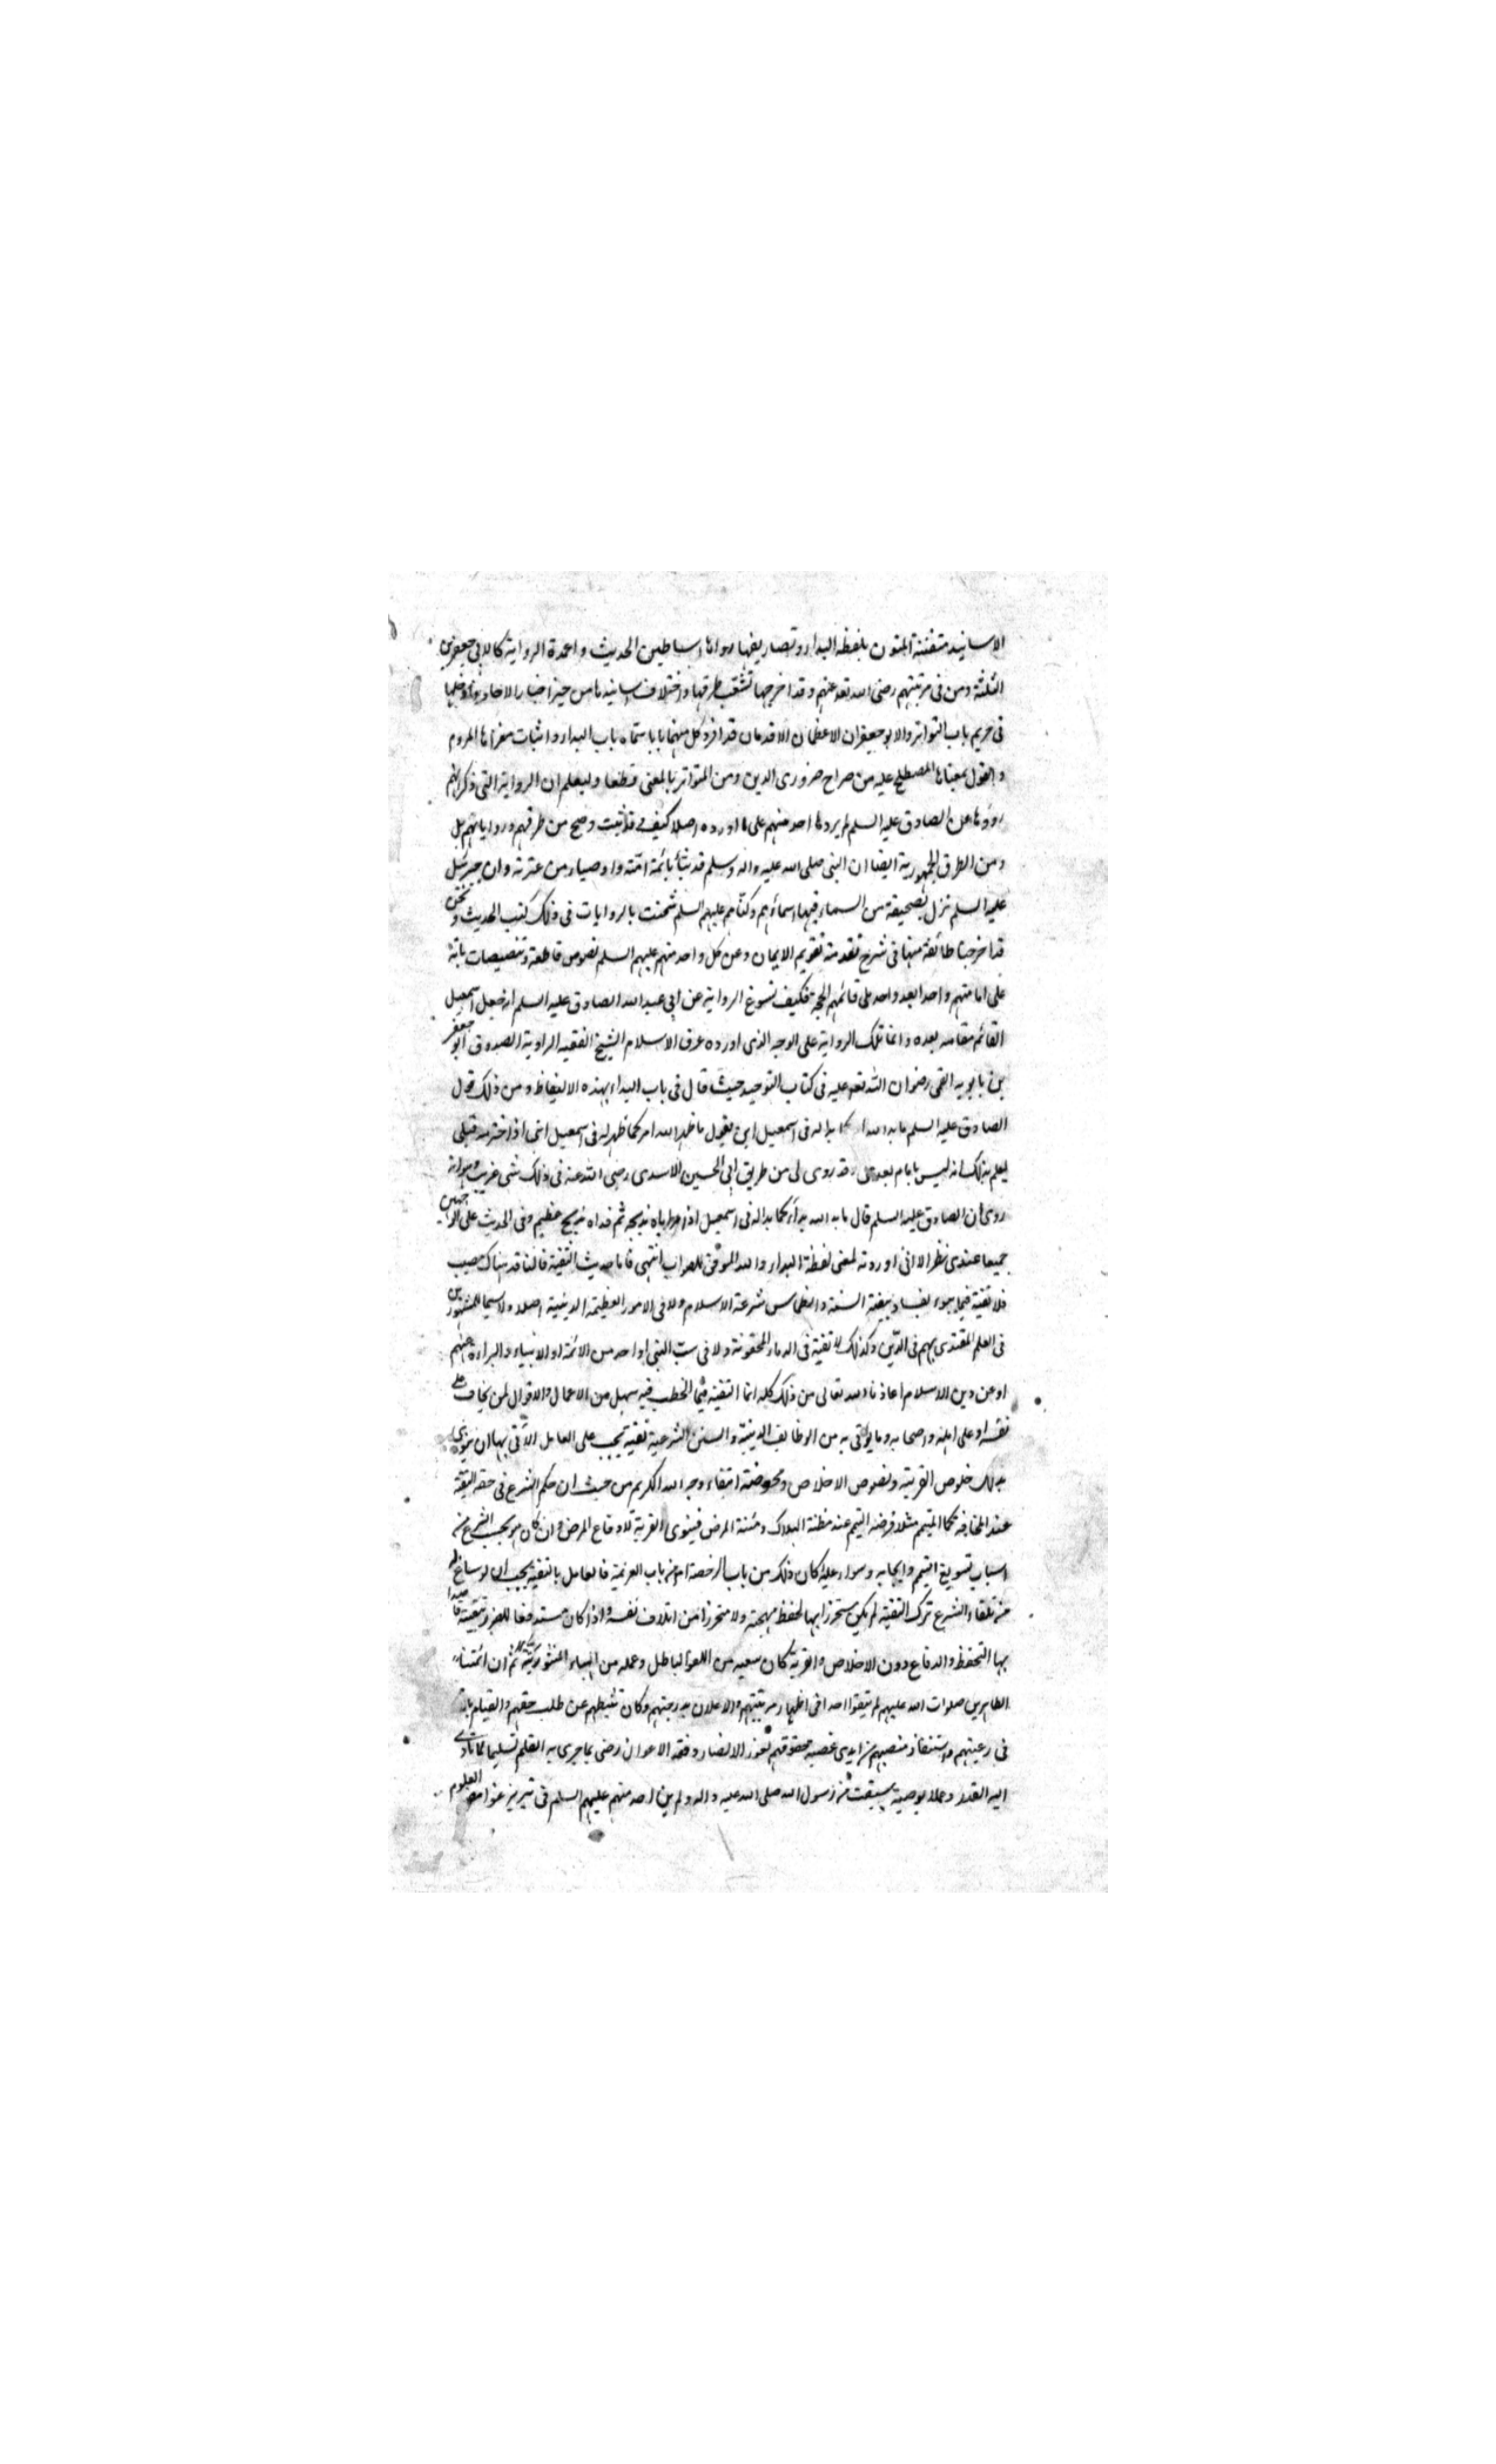 الاسانيد متفننة المتون بلفظة البداء وتصاريفها رواتها اساطين الحديث واعمدة الرواية كالابي جعفرين
الثلثة ومن في مرتبتهم رضي الله تعالى عنهم وقد اخرجها تشعب طرقها واختلاف اسانيدها من حيز اخبار الاحاد وادخلها
في حريم باب التواتر والابو جعفران الاعظمان الاقدمان قد افرد كل منهما بابا سماه باب البداء واثبات مغزاها المروم
والقول بمعناها المصطلح عليه من صراح ضروري الدين ومن المتواتر بالمعنى قطعا وليعلم ان الرواية التي ذكر انهم
رووها عن الصادق عليه السلم لم يردها احد منهم على ما اورده اصلا كيف وقد ثبت وصح من طرقهم ورواياتهم بل
ومن الطرق الجمهورية ايضا ان النبي صلى الله عليه واله وسلم قد نبأ بائمة امته واوصياء من عترته وان جبرئيل
عليه السلم نزل بصحيفة من السماء فيها اسماؤهم وكناهم عليهم السلم شحنت بالروايات في ذلك كتب الحديث ونحن
قد اخرجنا طائفة منها في شرح تقدمة تقويم الايمان وعن كل واحد منهم عليهم السلم نصوص قاطعة وتنصيصات باتة
على امامتهم واحدا بعد واحد على قائمهم الحجة فكيف تسوغ الرواية عن ابي عبد الله الصادق عليه السلم انه جعل اسمعيل
القائم مقامه بعده وانما تلك الرواية على الوجه الذي اورده عرف الاسلام الشيخ الفقيه الراوية الصدوق ابو جعفر
بن بابويه القمي رضوان الله تعالى عليه في كتاب التوحيد حيث قال في باب البداء بهذه الالفاظ ومن ذلك قول
الصادق عليه السلم ما بدا لله كما بدا له في اسمعيل ابني يقول ما ظهر لله امر كما ظهر له في اسمعيل ابني اذ اخترمه قبلي
ليعلم بذلك انه ليس بامام بعدي وقد روى لي من طريق ابي الحسين الاسدي رضي الله عنه في ذلك شيء غريب وهو انه
روى ان الصادق عليه السلم قال ما بدا لله بداء كما بدا له في اسمعيل اذ امر اباه بذبحه ثم فداه بذبح عظيم وفي الحديث على الوجهين
جميعا عندي نظر الا اني اوردته لمعنى لفظة البداء والله الموفق للصواب انتهى فاما حديث التقية فالناقد هناك مصيب
فلا تقية فيما يبوء بفساد بيضة السنة وانطماس شرعة الاسلام ولا في الامور العظيمة الدينية اصلا ولا سيما للمشهورين
في العلم المقتدى بهم في الدين وكذلك لا تقية في الدماء المحقونة ولا في سب النبي او احد من الائمة او الانبياء والبراءة عنهم
او عن دين الاسلام اعاذنا الله تعالى من ذلك كله انما التقية فيما الخطب فيه سهل من الاعمال والاقوال لمن يخاف على
نفسه او على اهله واصحابه وما يؤتى به من الوظائف الدينية والسنن الشرعية تقية يجب على العامل الاتي بها ان ينوي
بذلك خلوص القربة ونصوص الاخلاص ومحوضة ابتغاء وجه الله الكريم من حيث ان حكم الشرع في حقه التقية
عند المخافة كما المتيمم مثلا فرضه التيمم عند مظنة الهلاك ومئنة المرض فينوي القربة لا دفاع المرض وان كان هو بحسب الشرع من
اسباب تسويغ التيمم وايجابه وسواء عليه كان ذلك من باب الرخصة ام من باب العزيمة فالعامل بالتقية بحسب ان لو ساغ له
من تلقاء الشرع ترك التقية لم يكن متحرزا بها لحفظ مهجته ولا متحرزا من اتلاف نفسه واذا كان مستدفعا للضرر بتقيته قاصدا
بها التحفظ والدفاع دون الاخلاص والقربة كان سعيه من اللغو الباطل وعمله من الهباء المنثور ثم ان ائمتنا
الطاهرين صلوات الله عليهم لم يتقوا احدا في اظهار مرتبتهم والاعلان بدرجتهم وكان تثبطهم عن طلب حقهم والقيام بالامر
في رعيتهم واستنقاذ منصبهم من ايدي غصبة حقوقهم لعوز الانصار وفقد الاعوان رضى بما جرى به القلم تسليما لما تأدى
اليه القدر وعملا بوصية سبقت من رسول الله صلى الله عليه واله ولم ين احد منهم عليهم السلم في تبريز غوامض العلوم